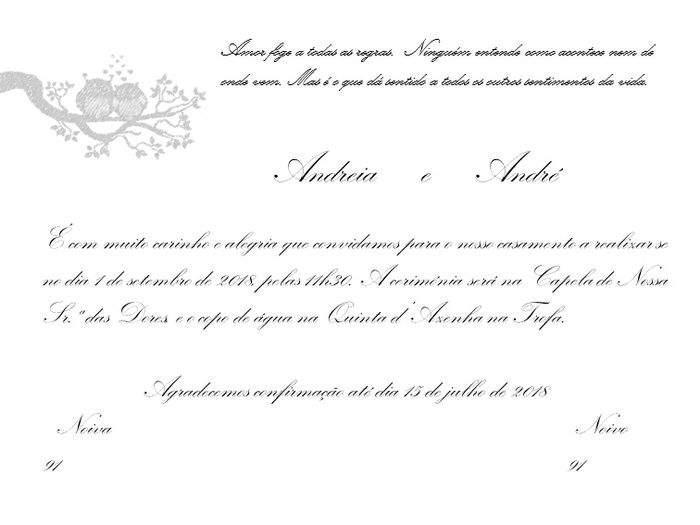 Amor foge a todas as regras. Ninguém entende como acontece nem de
onde vem. Mas é o que dá sentido a todos os outros sentimentos da vida.
Andreia e André
É com muito carinho e alegria que convidamos para o nosso casamento a realizar se
no dia 1 de setembro de 2018, pelas 11h30. A cerimónia será na Capela de Nossa
Sr.ª das Dores, e o copo de água na Quinta d' Azenha na Trofa.
Agradecemos confirmação até dia 15 de julho de 2018
Noiva Noivo
91 91